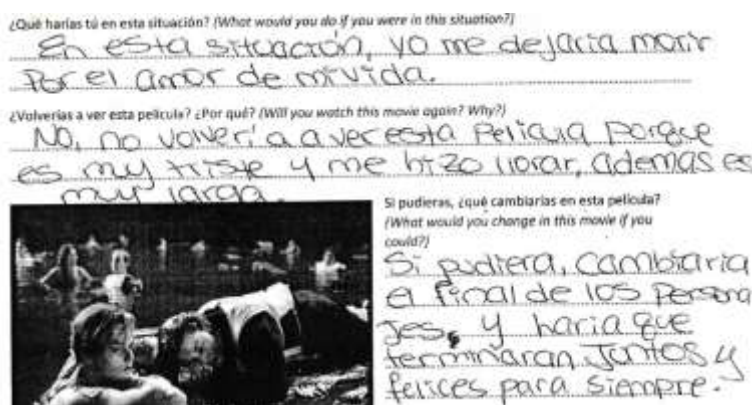 ¿Qué harías tú en esta situación? (What would you do if you were in this situation?)
En esta situación, yo me dejaria morir
Por el amor de mi vida.
¿Volverías a ver esta película? ¿Por qué? (Will you watch this movie again? Why?)
No, no volveri a a ver esta Pelicula porque
es muy triste y me hizo llorar, ademas es
muy larga.
Si pudieras, ¿qué cambiarías en esta película?
(What would you change in this movie if you
could?)
Si pudiera, cambiaria
el final de los Persona
jes, y haria que
terminaran Juntos y
felices para siempre.